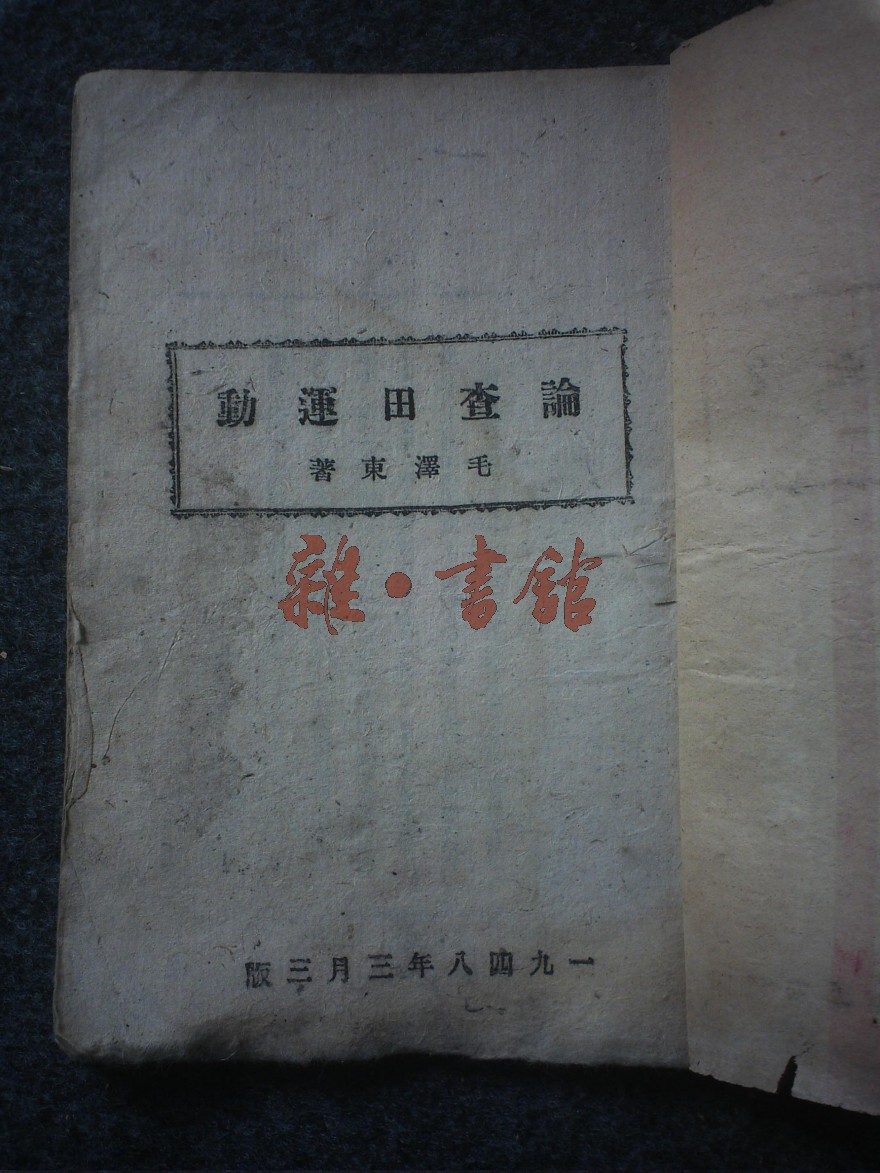 論查田運動
毛澤東著
雜·書館
一九四八年三月三版